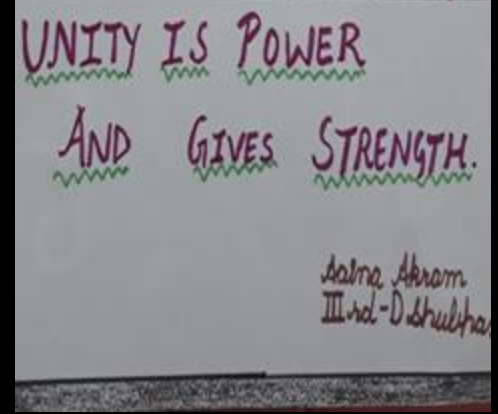 UNITY IS POWER
AND GIVES STRENGTH.
Saina Akram
III rd-D